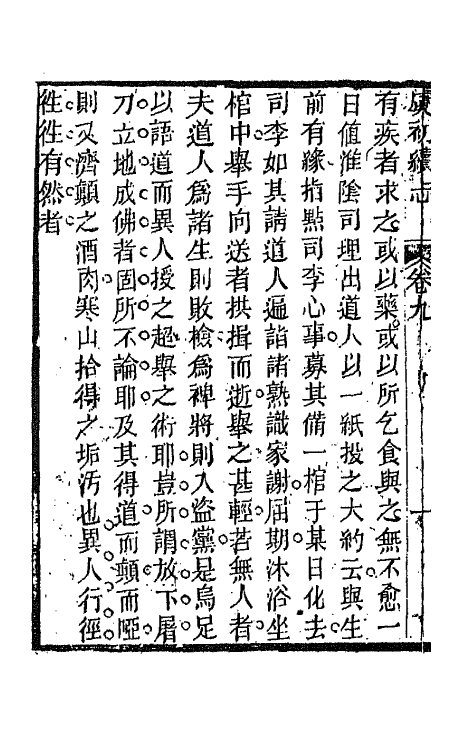 虞初續志 卷九
有疾者求之或以藥或以所乞食與之無不愈一
日值淮陰司理出道人以一紙投之大約云與生
前有緣指點司李心事募其備一棺于某日化去
司李如其請道人遍詣諸熟識家謝屆期沐浴坐
棺中舉手向送者拱揖而逝舉之甚輕若無人者
夫道人為諸生則敗檢為裨將則入盜黨是烏足
以語道而異人授之超舉之術耶豈所謂放下屠
刀立地成佛者固所不論耶及其得道而顛而啞
則又濟顛之酒肉寒山拾得之垢汚也異人行徑
徃徃有然者